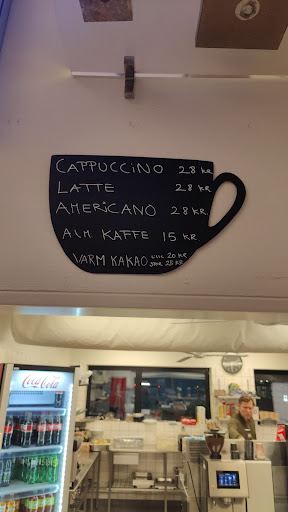 CAPPUCCINO 28 KR.
LATTE 28 KR.
AMERICANO 28 KR.
ALM KAFFE 15 KR.
VARM KAKAO LILLE 20 KR.
STOR 25 KR.
Coca-Cola